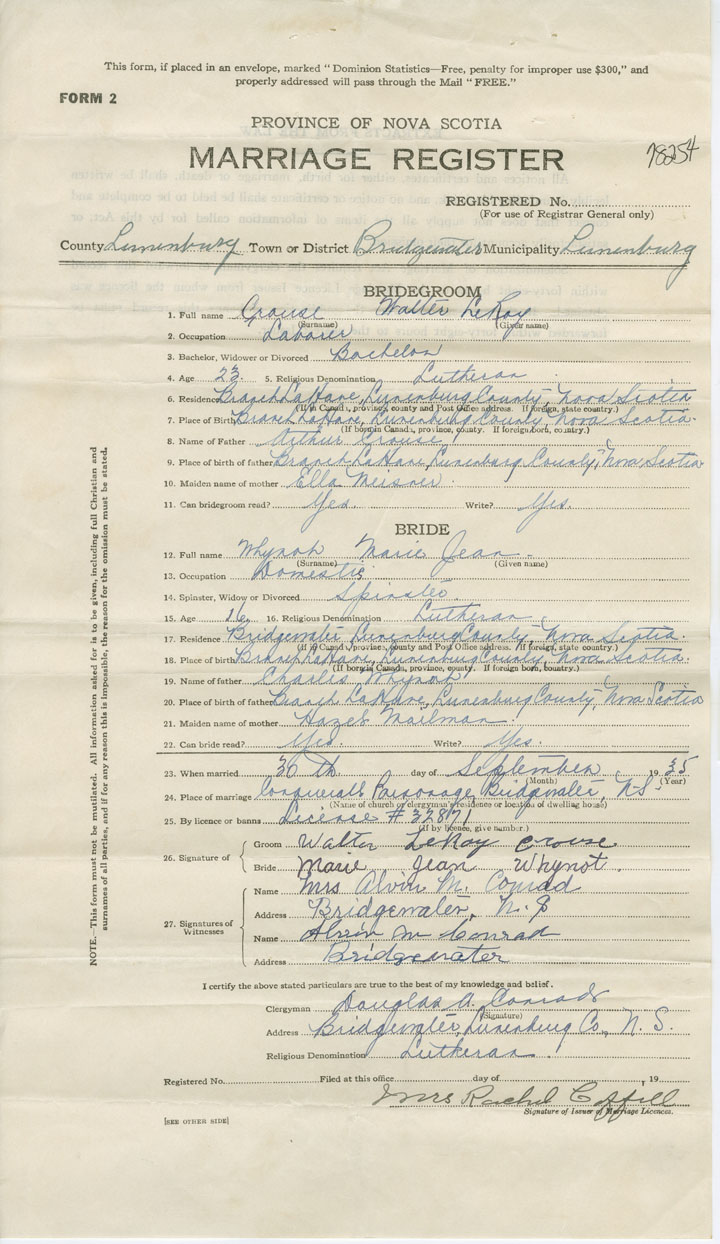 This form, if placed in an envelope, marked " Dominion Statistics—Free, penalty for improper use $300," and
properly addressed will pass through the Mail " FREE."
FORM 2
PROVINCE OF NOVA SCOTIA
MARRIAGE REGISTER
78254
REGISTERED No.
(For use of Registrar General only)
County Lunenburg Town or District Bridgewater Municipality Lunenburg
BRIDEGROOM
1. Full name Crouse Walter LeRoy
(Surname) (Given name)
2. Occupation Laborer
3. Bachelor, Widower or Divorced Bachelor
4. Age 23 5. Religious Denomination Lutheran
6. Residence Branch LaHave, Lunenburg County, Nova Scotia
(If in Canada, province, county and Post Office address. If foreign, state country.)
7. Place of Birth Branch LaHave, Lunenburg County Nova Scotia.
(If born in Canada, province, county. If foreign born, country.)
8. Name of Father Arthur Crouse
9. Place of birth of father Branch LaHave, Lunenburg County, Nova Scotia
10. Maiden name of mother Ella Meisner.
11. Can bridegroom read? Yes. Write? Yes.
BRIDE
12. Full name Whynot Marie Jean.
(Surname) (Given name)
13. Occupation Domestic
14. Spinster, Widow or Divorced Spinster.
15. Age 16 16. Religious Denomination Lutheran
17. Residence Bridgewater, Lunenburg County, Nova Scotia.
(If in Canada, province, county and Post Office address. If foreign, state country.)
18. Place of birth Branch LaHave, Lunenburg County, Nova Scotia.
(If born in Canada, province, county. If foreign born, country.)
19. Name of father Charles Whynot
20. Place of birth of father Branch LaHave, Lunenburg County, Nova Scotia
21. Maiden name of mother Hazel Mailman.
22. Can bride read? Yes. Write? Yes.
23. When married 30 th day of September 19 35
(Month) (Year)
24. Place of marriage Parsonage, Bridgewater, N S.
(Name of church or clergyman's residence or location of dwelling house)
25. By licence or banns License # 32871
(If by licence, give number.)
26. Signature of
Groom Walter LeRoy Crouse
Bride Marie Jean Whynot.
27. Signatures of Witnesses
Name Mrs Alvin M. Conrad
Address Bridgewater, N. S
Name Alvin M Conrad
Address Bridgewater
I certify the above stated particulars are true to the best of my knowledge and belief.
Clergyman Douglas A. Conrad
(Signature)
Address Bridgewater, Lunenburg Co., N. S.
Religious Denomination Lutheran.
Registered No. Filed at this office day of , 19
Mrs Rachel Coffill
Signature of Issuer of Marriage Licences.
[SEE OTHER SIDE]
NOTE.—This form must not be mutilated. All information asked for is to be given, including full Christian and
surnames of all parties, and if for any reason this is impossible, the reason for the omission must be stated.